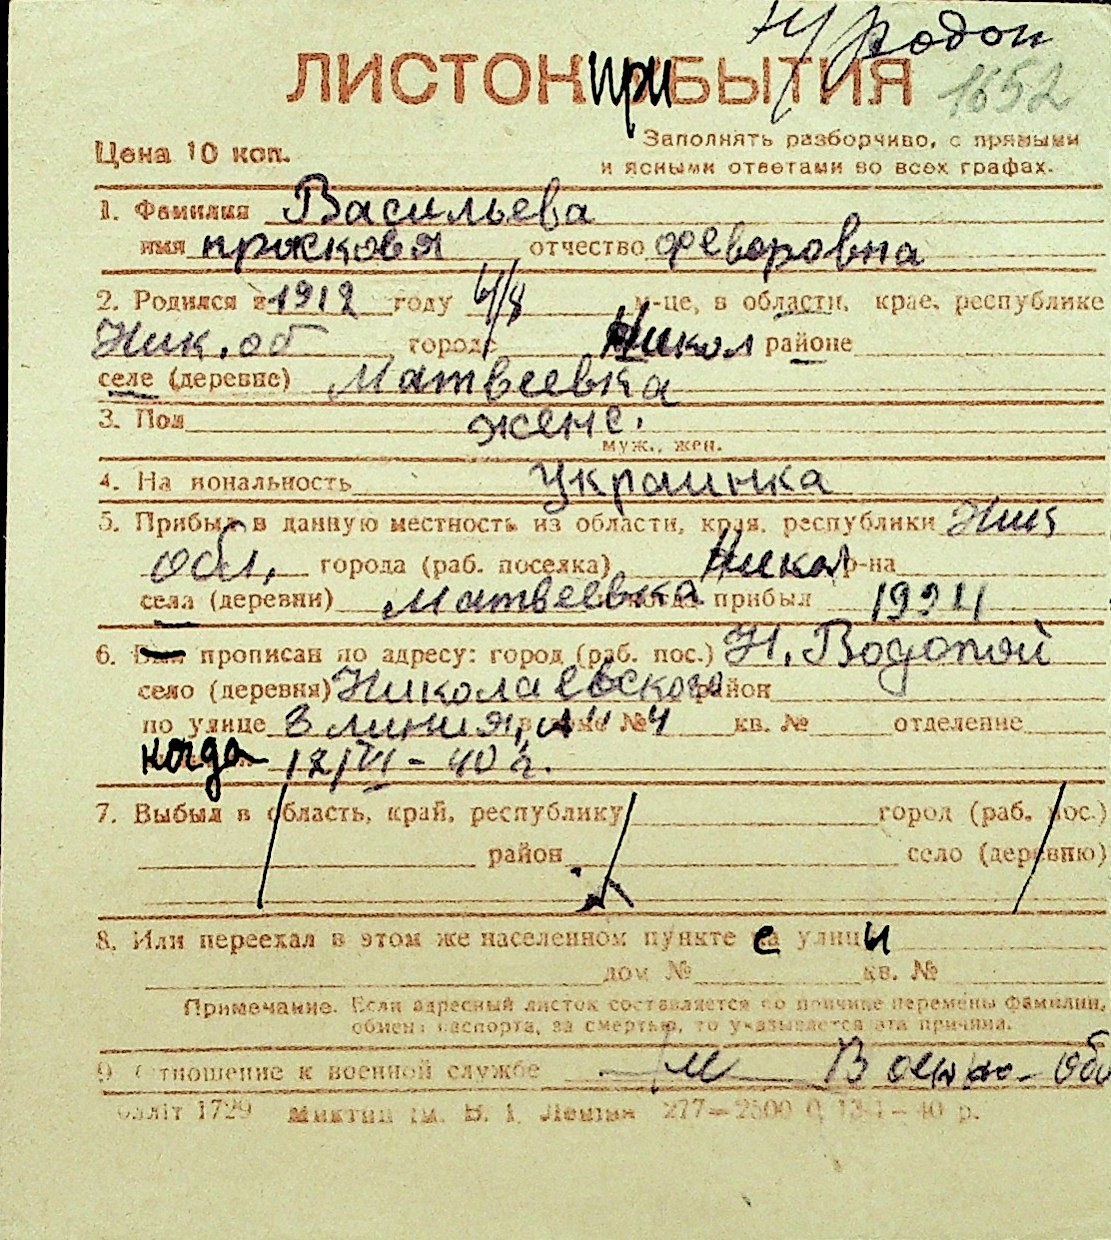 родон
ЛИСТОК приБЫТИЯ
1652
Цена 10 коп.
Заполнять разборчиво, с прямыми
и ясными ответами во всех графах.
1. Фамилия Васильева
имя прасковя отчество Феворовна
2. Родился в 1912 году 4/8 м-це, в области, крае, республике
Ник. об городе Никол районе
селе (деревне) Матвеевка
3. Пол женс.
муж., жен.
4. На иональность украинка
5. Прибыл в данную местность из области, края, республики Ник
обл, города (раб. поселка) Никол р-на
села (деревни) Матвеевка когда прибыл
6. прописан по адресу: город (раб. пос.) Н. Водопой
село (деревня) Николаевского район
по улице 3 линия, № 4 кв. № отделение
когда 12/VI - 40 г.
7. Выбыл в область, край, республику город (раб. пос.)
район село (деревню)
8. Или переехал в этом же населенном пункте с улицы
дом № кв. №
Примечание. Если адресный листок составляется по причине перемены фамилии,
обмена паспорта, за смертью, то указывается эта причина.
9 Отношение к военной службе
1729 277—2500 13-I—40 р.